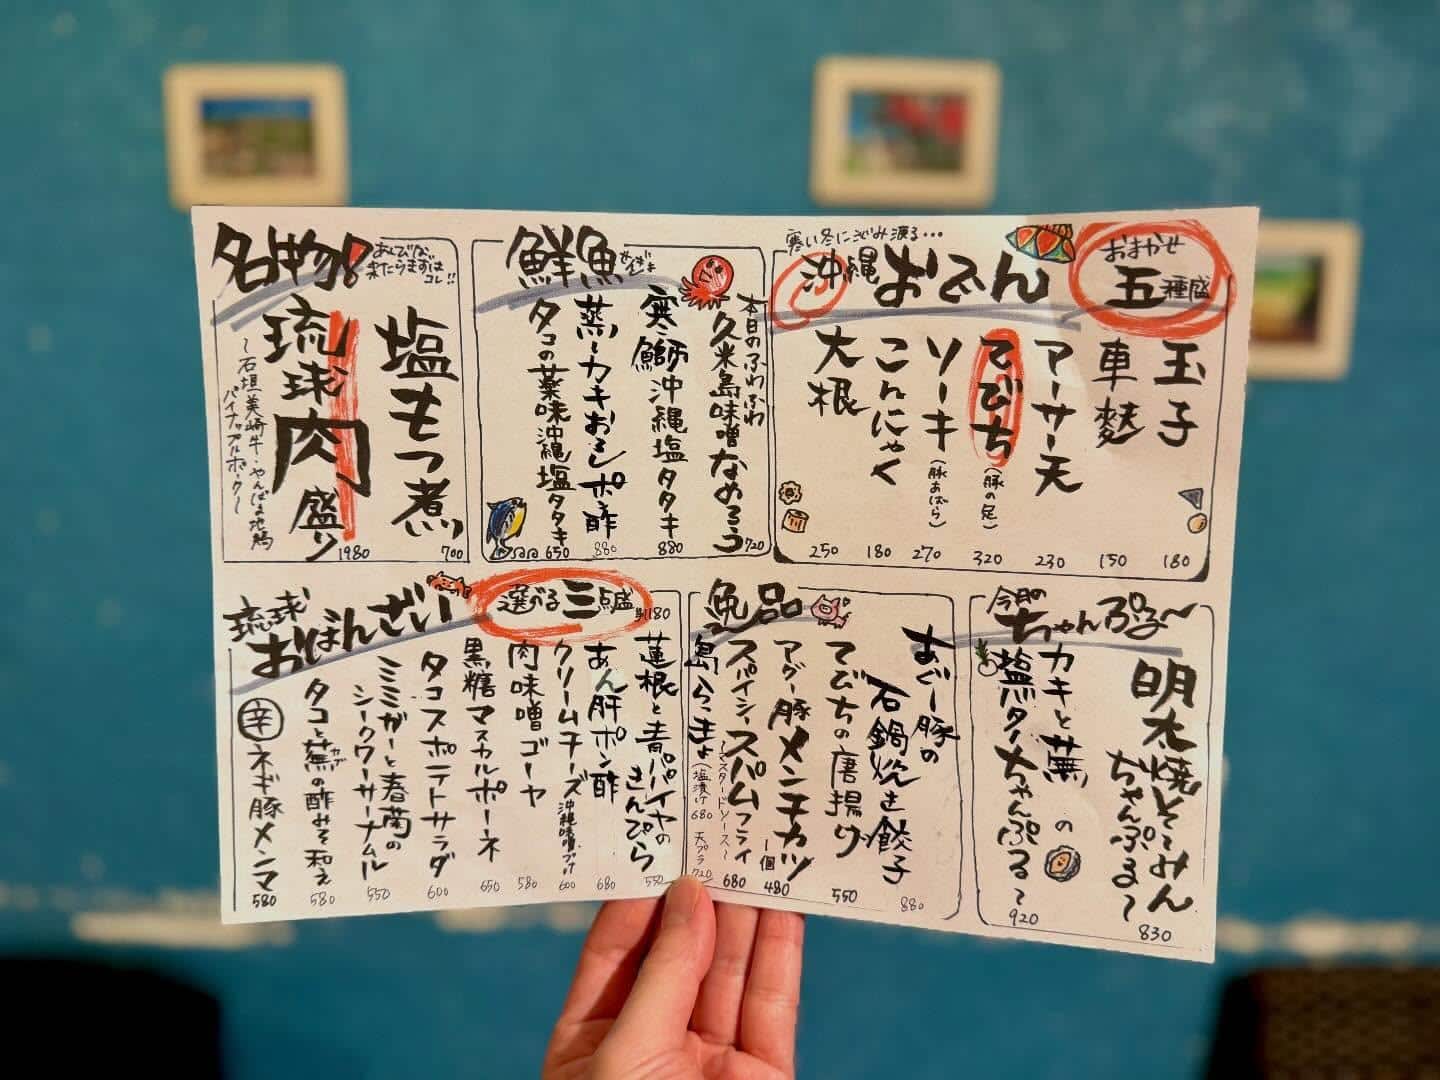 名物!
来たらまずは
コレ!!
塩もつ煮
700
琉球肉盛り
〜石垣美崎牛・やんばる地鶏
パイナップルポーク〜
1980
鮮魚
本日のふわふわ
久米島味噌なめろう
720
寒鰤沖縄塩タタキ
880
蒸しカキおろしポン酢
880
タコの薬味沖縄塩タタキ
650
寒い冬に沁み渡る…
沖縄おでん
おまかせ
五種盛
玉子
180
車麩
150
アーサー天
230
てびち(豚の足)
320
ソーキ(豚あばら)
270
こんにゃく
180
大根
250
琉球
おばんざい
選べる三点盛
¥1180
蓮根と青パパイヤの
きんぴら
550
あん肝ポン酢
680
クリームチーズ沖縄味噌づけ
600
肉味噌ゴーヤ
580
黒糖マスカルポーネ
650
タコスポテトサラダ
600
ミミガーと春菊の
シークワーサーナムル
550
タコと蕪の酢みそ和え
カブ
580
辛ネギ豚メンマ
580
逸品
あぐー豚の
石鍋焼き餃子
880
てびちの唐揚げ
550
アグー豚メンチカツ
1個
480
スパイシースパムフライ
〜マスタードソース〜
680
島らっきょ(塩漬け680 天プラ720)
今月の
ちゃんぷる〜
明太焼そーみん
ちゃんぷるー
830
カキと蕪の
塩バターちゃんぷるー
920